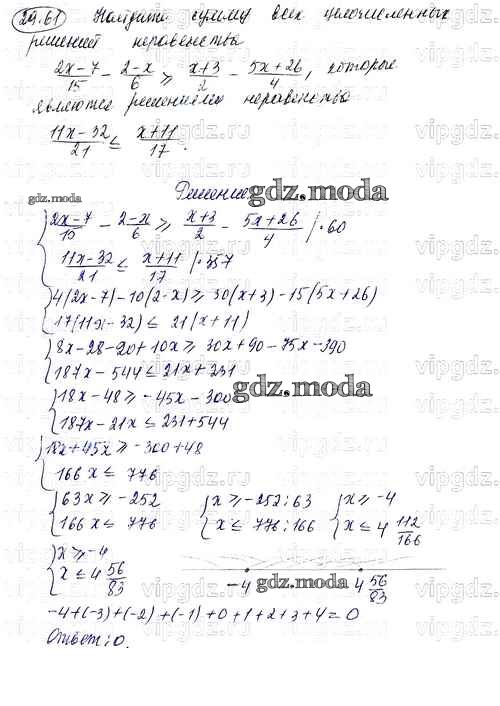 29.61 Найдите сумму всех целочисленных
решений неравенства
2x-7/15 - 2-x/6 ⩾ x+3/2 - 5x+26/4, которые
являются решениями неравенства
11x-32/21 ≤ x+11/17.
Решение
gdz.moda
{2x-7/15 - 2-x/6 ⩾ x+3/2 - 5x+26/4 /·60
11x-32/21 ≤ x+11/17 /·357
{4(2x-7)-10(2-x)⩾ 30(x+3)-15(5x+26)
17(11x-32) ≤ 21(x+11)
{8x-28-20+10x ⩾ 30x+90-75x-390
187x-544 ≤ 21x+231
gdz.moda
{18x-48 ⩾ -45x-300
187x-21x ≤ 231+544
{18x+45x ⩾ -300+48
166x ≤ 776
{63x ⩾ -252 {x ⩾ -252:63 {x ⩾ -4
166x ≤ 776 x ≤ 776:166 x ≤ 4 112/166
{x ⩾ -4
x ≤ 4 56/83
-4 gdz.moda 4 56/83
-4+(-3)+(-2)+(-1)+0+1+2+3+4=0
Ответ: 0.